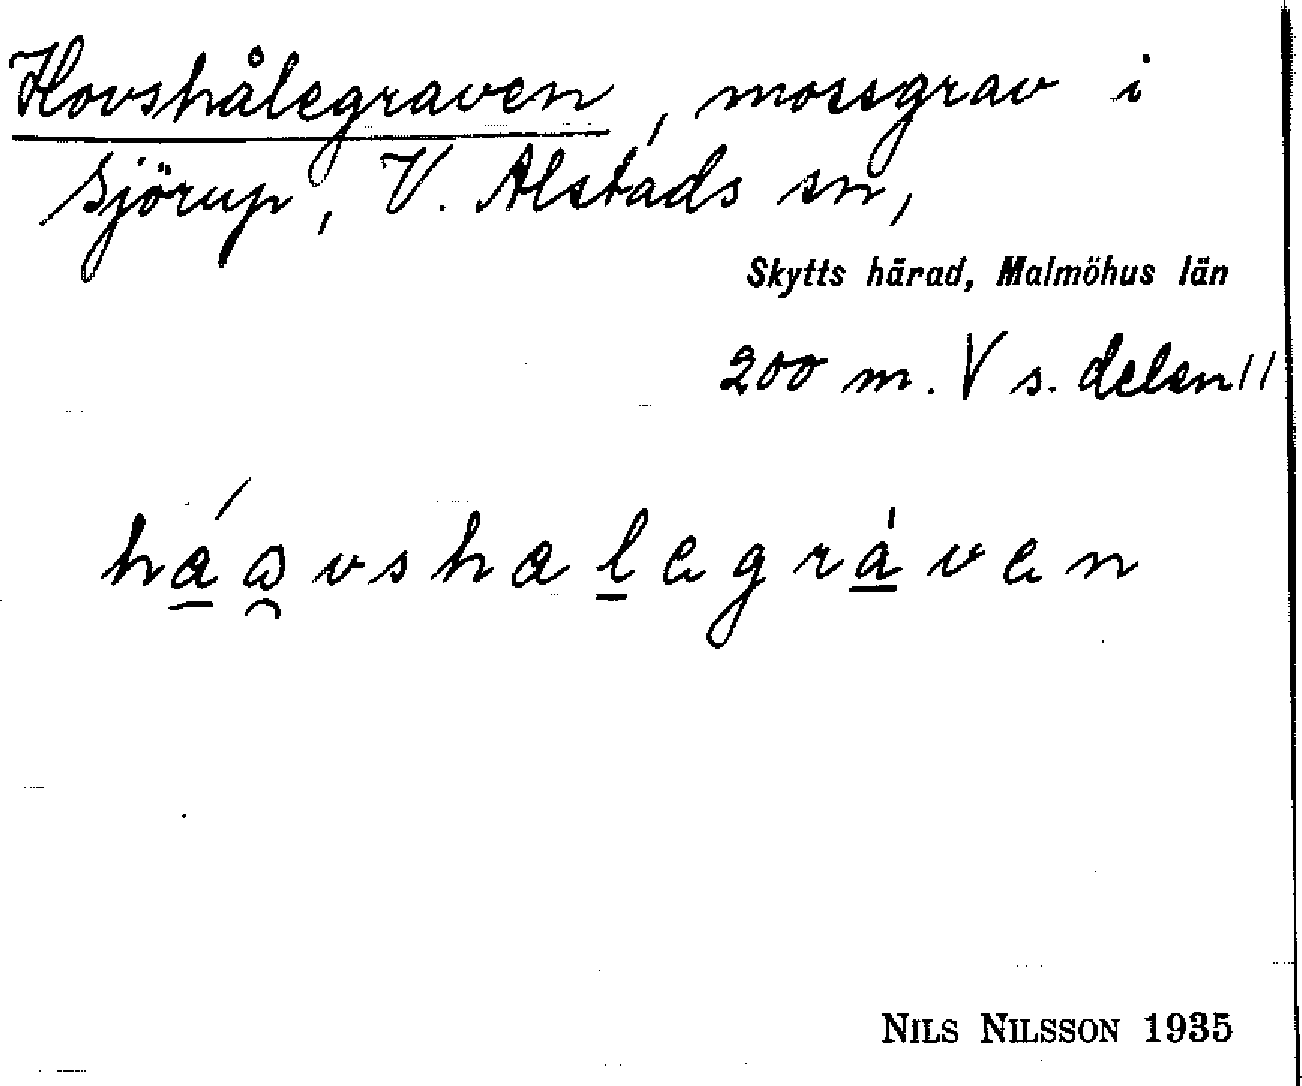 Hovshålegraven, mossgrav i
Sjörup, V. Alstads sn,
Skytts härad, Malmöhus län
200 m. V s. delen 11
NILS NILSSON 1935